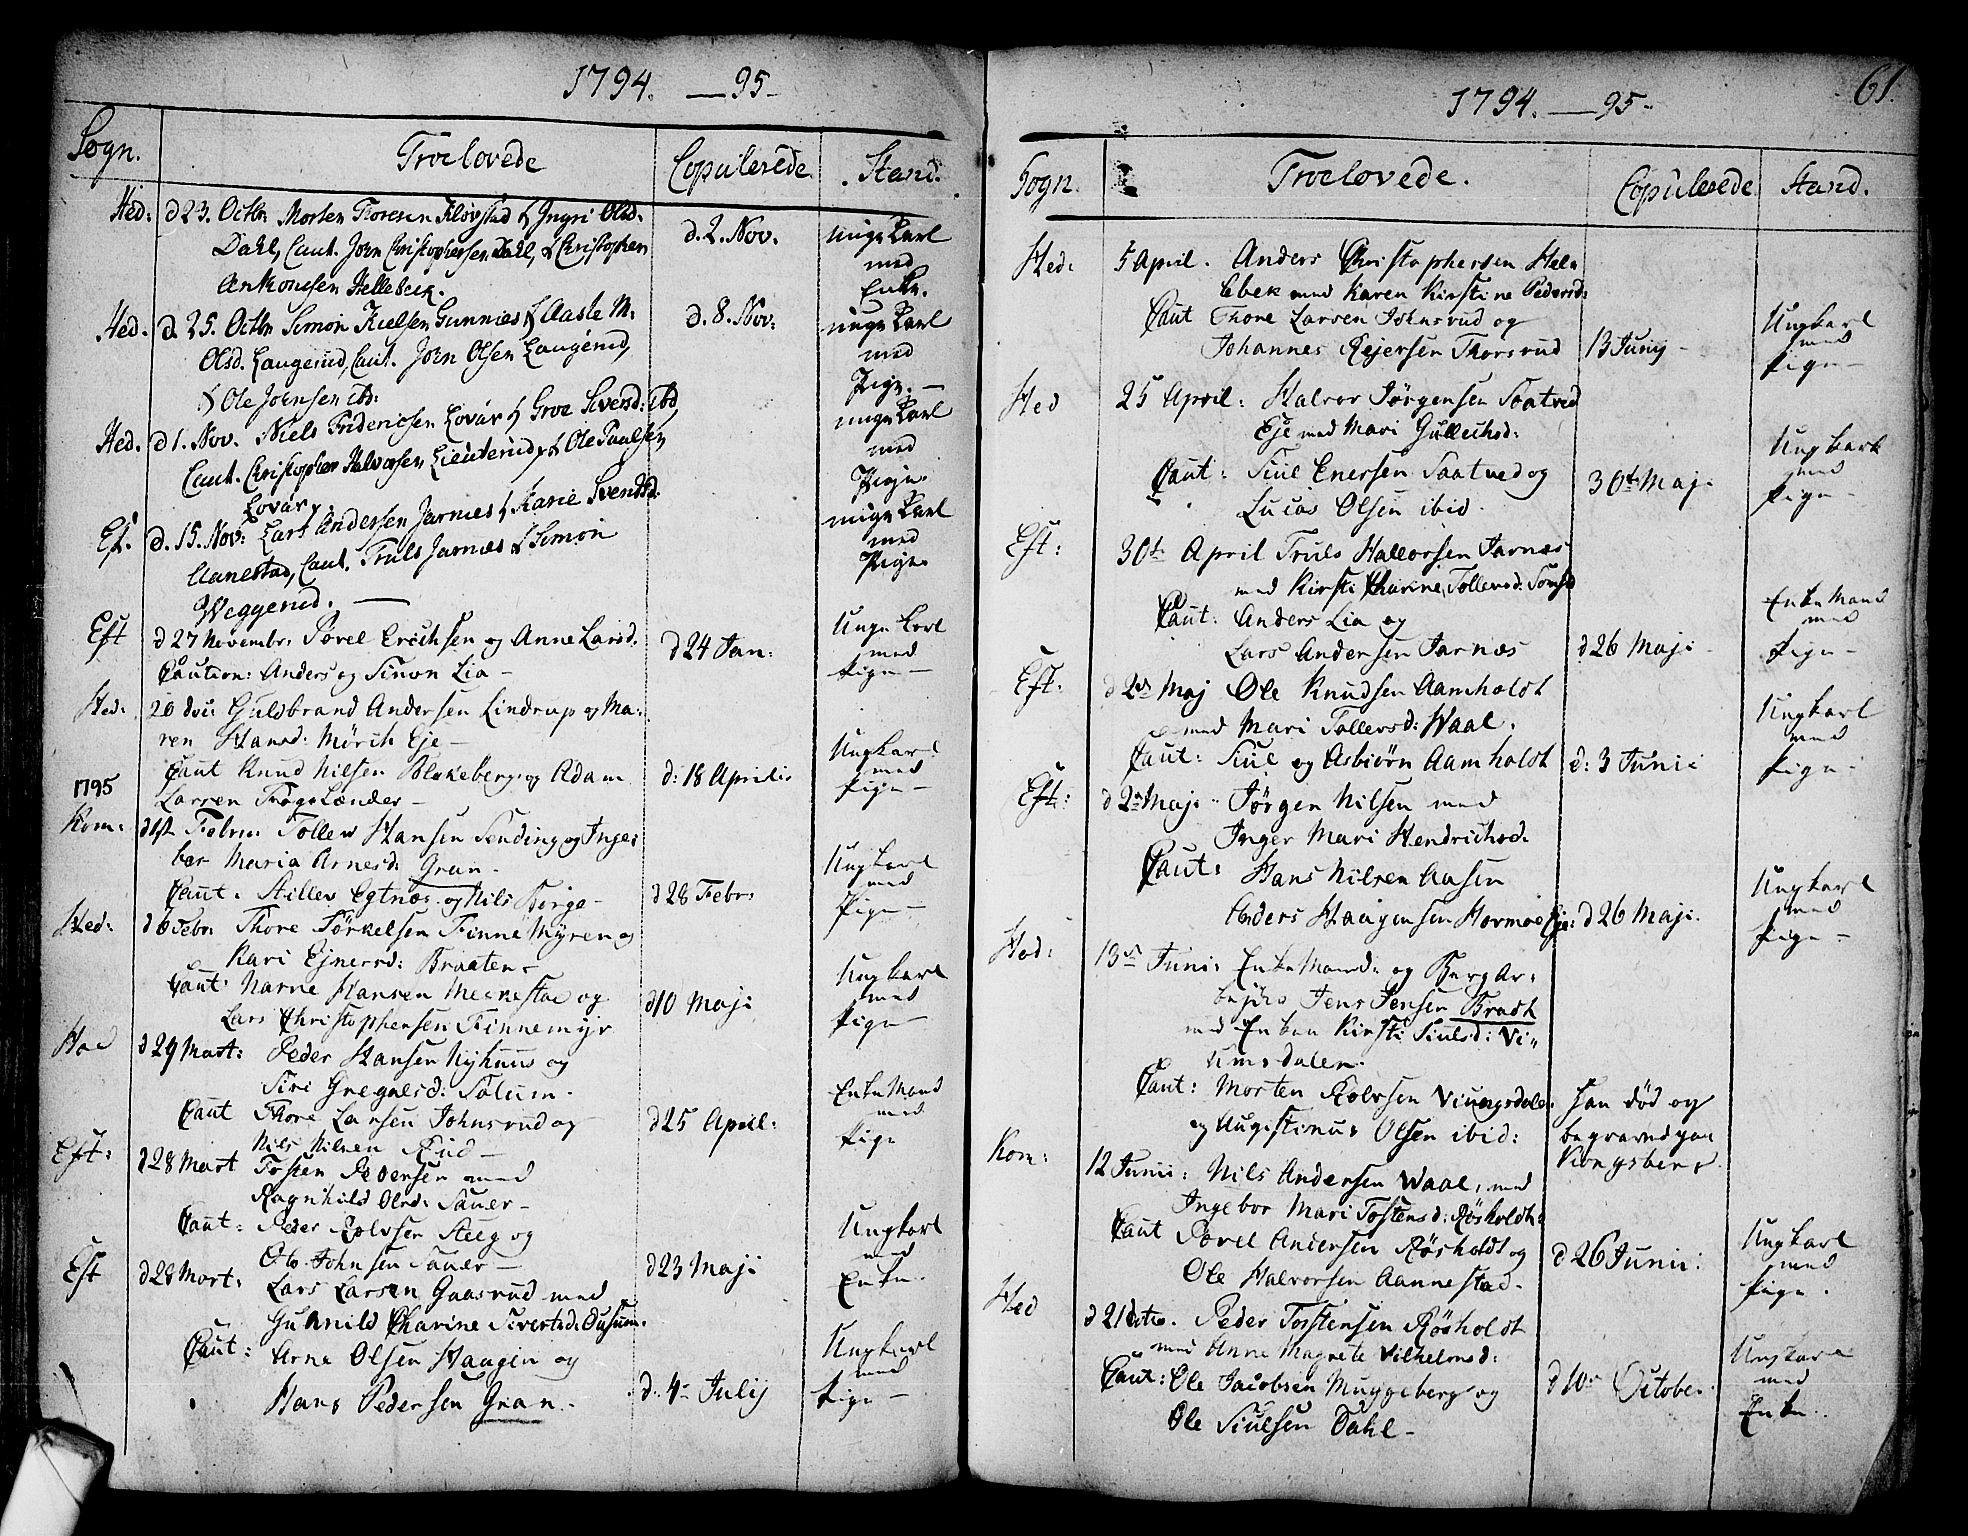 1794. — 95-
Sogn. Troelovede Copulerede Stand.
Hed: d 23. Octbr Morten Thoresen Kløvstad & Ingri Olsd.
Dahl, Caut. Jørn Christophersen Dahl, & Christophen
Anthonisen Hellebeck. d. 2. Nov. unge Karl
med
Enke.
Hed. d. 25. Octbr Simon Nielsen Gunnæs & Aasle M.
Olsd. Laugerud, Caut. Jørn Olsen Laugerud,
& Ole Joensen ibd: d. 8. Nov: unge Karl
med
Pige. —
Hed. d 1. Nov. Niels Friderichsen Lovár & Groe Siversd: ibd,
Caut. Christopher Halvorsen Lieuterud, & Ole Paulsen
Lovár. unge Karl
med
Pige.
Ef. d. 15. Nov: Lars Andersen Jarnæs & Karie Svendsd.
Aanestad, Caut. Truls Jarnæs & Simon
Weggerud. — unge Karl
med
Pige.
Eft d 27 Novembr. Povel Erichsen og Anne Larsd.
Caution: Anders og Simon Lia - d 24 Jan: Unge Karl
med
Pige -
Hed: 20 Guldbrand Andersen Lindrup og Ma:
ren Hansd: Mörch Eje -
Caut Knud Nilsen Blekeberg og Adam
Larsen Fogslænder - d: 18 Aprilis Ungkarl
med
Pige -
1795
Kom: d 1st Febru: Tollev Hansen Sending og Inge:
bor Maria Arnesd: Gran -
Caut. Stillev Egtnæs og Nils Berge - d 28 Febr: Ungkarl
med
Pige -
Hed: d 6 Febr Thore Törkelsen Finne Myren og
Kari Ejnersd: Braaten -
Caut: Narve Hansen Meenstae og
Lars Christophersen Finnemyr d 10 Maji Ungkarl
med
Pige -
Hed d 29 Mart: Peder Hansen Nyhuus og
Siri Gregaesd: Solum -
Caut Thore Larsen Johnsrud og
Nils Nilsen Rud - d 25 April: Enke Mand
med
Pige
Eft: d 28 Mart Tosten Pedersen med
Ragnhild Olsd: Sauer -
Caut: Peder Rolvsen Steeg og
Ole Johnsen Sauer - d 23 Maji Ungkarl
med
Enke.
Eft d 28 Mart: Lars Larsen Gaasrud med
Gunild Charine Sivertsd: Busuen.
Caut: Arne Olsen Haugen og
Hans Pedersen Gran - d. 4 Julij Ungkarl
med
Pige -
1794. — 95- 61.
Sogn. Troelovede. Copulerede Stand.
Hed: 5 April. Anders Christophersen Hele
Ebek med Karen Kirstine Pedersd:
Caut Thore Larsen Johnsrud og
Johannes Rejersen Thorsrud 13 Junij - Ungkarl
med
Pige -
Hed 25 April: Halvor Jörgensen Saatved
Eje med Mari Gullechsd:
Caut: Siul Enersen Saatved og
Lucas Olsen ibid. 30t Maji Ungkarl
med
Pige -
Eft: 30t April Truls Hallvorsen Jarnæs
med Kirsti Charine Tollevsd:
Caut: Anders Lia og
Lars Andersen Jarnæs d 26 Maji Enke Mand
med
Pige -
Eft: d 2den Maj Ole Knudsen Aamholdt
med Mari Tollevsd: Waal.
Caut: Siul og Asbiörn Aamholdt d: 3 Junii Ungkarl
med
Pige -
Eft: d 2n Maji Jörgen Nilsen med
Inger Mari Hendrichsd:
Caut: Hans Nilsen Aasen
Anders Haagensen Hormoe Eje: d 26 Maji Ungkarl
med
Pige -
Hed: 13 Juni: Enke Mand: og Berg Ar:
bejder Jens Jensen Bradt
med Enken Kirsti Siulsd: Vi:
umsdalen.
Caut: Morten Rolvsen Viungsdalen
og Augustinus Olsen ibid: Han död og
begraved paa
Kongsberg
Kom: 12 Junii: Nils Andersen Waal, med
Ingebor Mari Tostensd: Røsholdt
Caut Povel Andersen Røsholdt og
Ole Halvorsen Aannestad. d 26 Junii: Ungkarl
med
Pige.
Hed d 21 Peder Torstensen Røsholdt
med Anne Magrete Vilhelmsd:
Caut: Ole Jacobsen Muggeberg og
Ole Siulsen Dahl - d 10 October. Ungkarl
med
Enke.